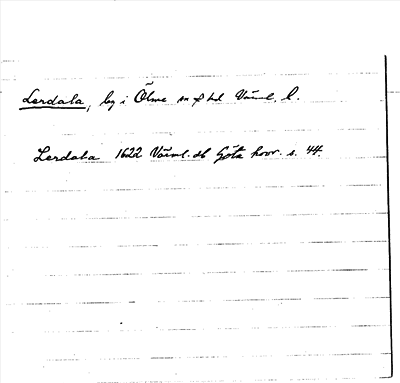 Lerdala, by i Ölme sn o hd Värml. l.
Lerdala 1622 Värml. db Göta hovr. s. 44.